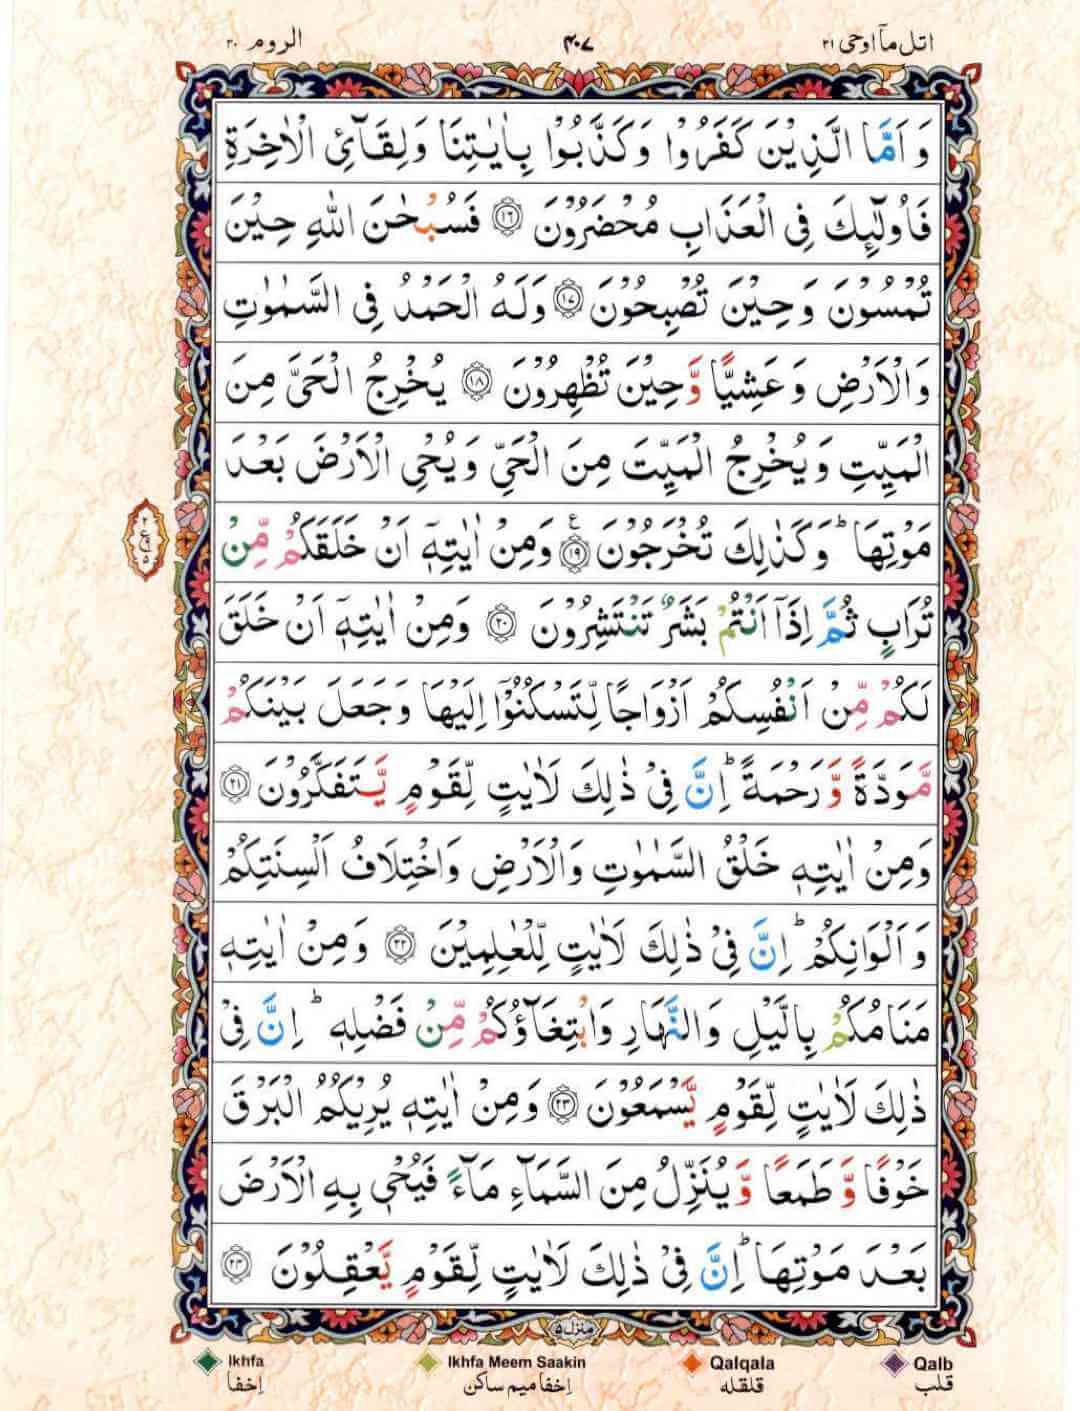 اتل مآ اوحی ۲۱ ۴۰۷ الروم ۳۰
وَ اَمَّا الَّذِيْنَ كَفَرُوْا وَكَذَّبُوْا بِاٰيٰتِنَا وَلِقَآئِ الْاٰخِرَةِ
فَاُولٰٓئِكَ فِى الْعَذَابِ مُحْضَرُوْنَ ۝۱۶ فَسُبْحٰنَ اللّٰهِ حِيْنَ
تُمْسُوْنَ وَحِيْنَ تُصْبِحُوْنَ ۝۱۷ وَلَهُ الْحَمْدُ فِى السَّمٰوٰتِ
وَالْاَرْضِ وَعَشِيًّا وَّحِيْنَ تُظْهِرُوْنَ ۝۱۸ يُخْرِجُ الْحَىَّ مِنَ
الْمَيِّتِ وَيُخْرِجُ الْمَيِّتَ مِنَ الْحَىِّ وَيُحْىِ الْاَرْضَ بَعْدَ
مَوْتِهَا ؕ وَكَذٰلِكَ تُخْرَجُوْنَ ۝۱۹ ع وَمِنْ اٰيٰتِهٖٓ اَنْ خَلَقَكُمْ مِّنْ
تُرَابٍ ثُمَّ اِذَآ اَنْتُمْ بَشَرٌ تَنْتَشِرُوْنَ ۝۲۰ وَمِنْ اٰيٰتِهٖٓ اَنْ خَلَقَ
لَكُمْ مِّنْ اَنْفُسِكُمْ اَزْوَاجًا لِّتَسْكُنُوْٓا اِلَيْهَا وَجَعَلَ بَيْنَكُمْ
مَّوَدَّةً وَّرَحْمَةً ؕ اِنَّ فِىْ ذٰلِكَ لَاٰيٰتٍ لِّقَوْمٍ يَّتَفَكَّرُوْنَ ۝۲۱
وَمِنْ اٰيٰتِهٖ خَلْقُ السَّمٰوٰتِ وَالْاَرْضِ وَاخْتِلَافُ اَلْسِنَتِكُمْ
وَاَلْوَانِكُمْ ؕ اِنَّ فِىْ ذٰلِكَ لَاٰيٰتٍ لِّلْعٰلِمِيْنَ ۝۲۲ وَمِنْ اٰيٰتِهٖ
مَنَامُكُمْ بِالَّيْلِ وَالنَّهَارِ وَابْتِغَآؤُكُمْ مِّنْ فَضْلِهٖ ؕ اِنَّ فِىْ
ذٰلِكَ لَاٰيٰتٍ لِّقَوْمٍ يَّسْمَعُوْنَ ۝۲۳ وَمِنْ اٰيٰتِهٖ يُرِيْكُمُ الْبَرْقَ
خَوْفًا وَّطَمَعًا وَّيُنَزِّلُ مِنَ السَّمَآءِ مَآءً فَيُحْىٖ بِهِ الْاَرْضَ
بَعْدَ مَوْتِهَا ؕ اِنَّ فِىْ ذٰلِكَ لَاٰيٰتٍ لِّقَوْمٍ يَّعْقِلُوْنَ ۝۲۴
منزل ۵
Ikhfa Ikhfa Meem Saakin Qalqala Qalb
اِخفا اِخفا میم ساکن قلقله قلب